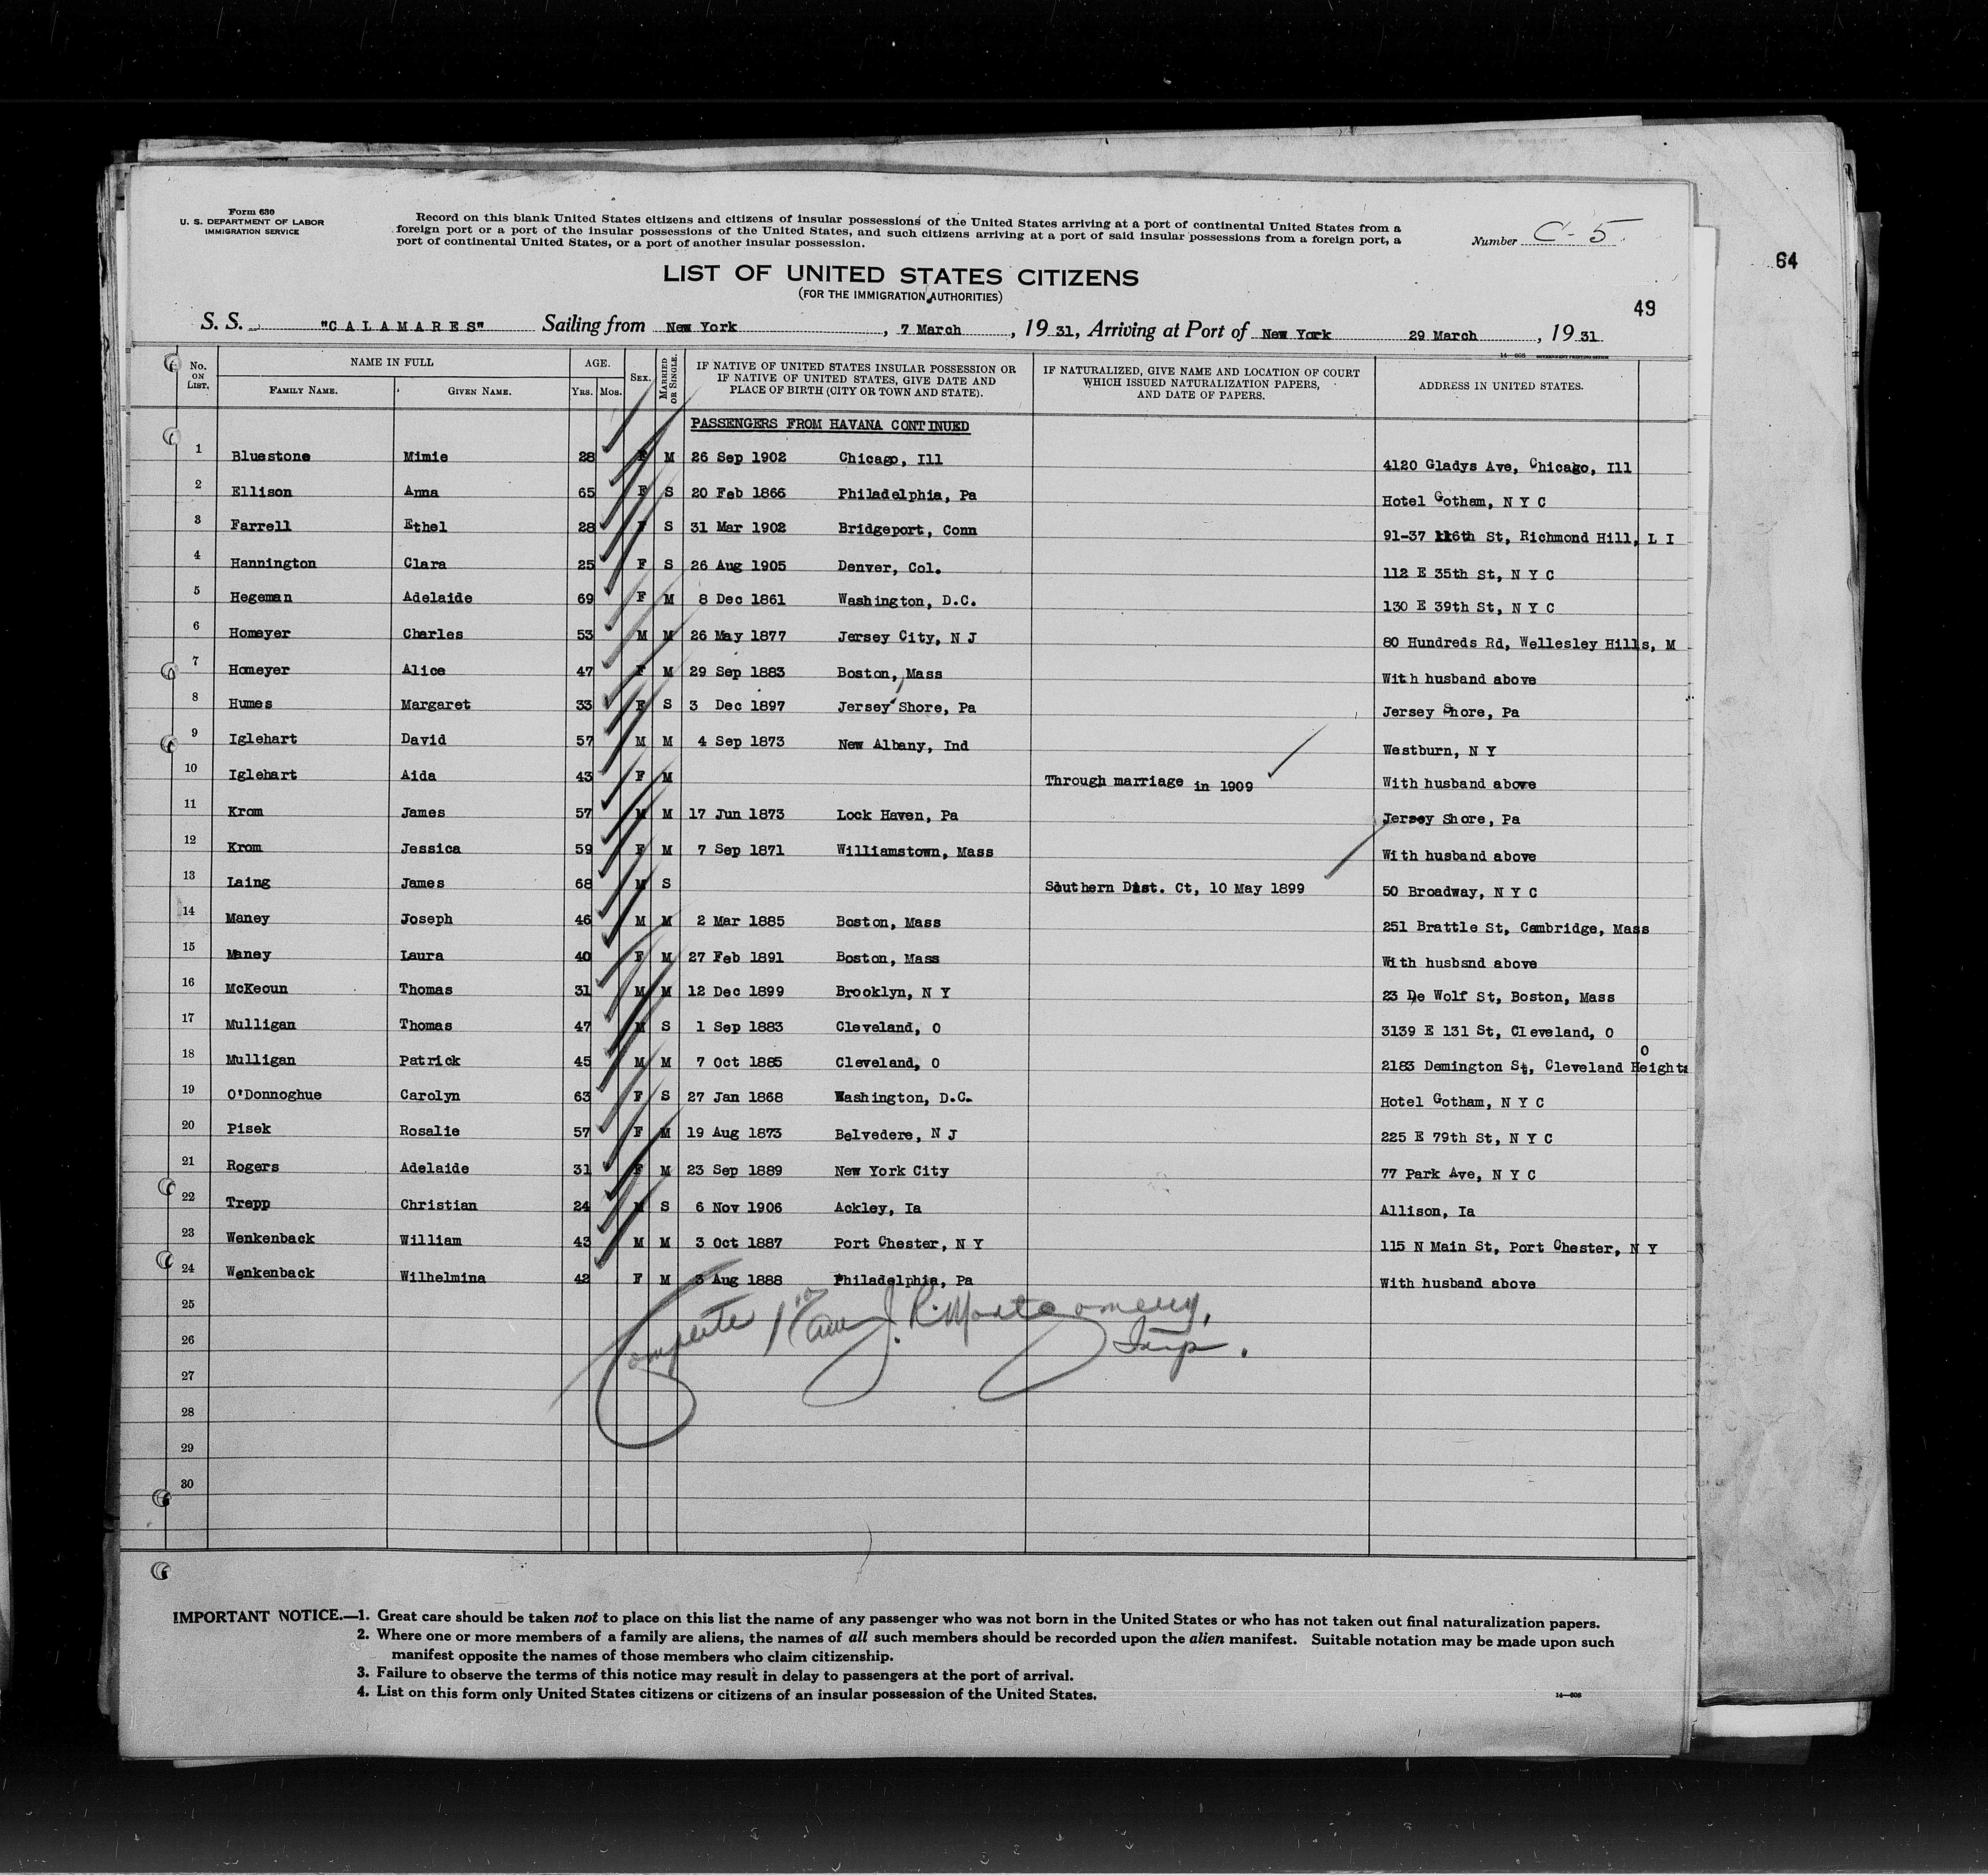 Form 630
U. S. DEPARTMENT OF LABOR
IMMIGRATION SERVICE
Record on this blank United States citizens and citizens of insular possessions of the United States arriving at a port of continental United States from a
foreign port or a port of the insular possessions of the United States, and such citizens arriving at a port of said insular possessions from a foreign port, a
port of continental United States, or a port of another insular possession.
Number C-5
64
LIST OF UNITED STATES CITIZENS
(FOR THE IMMIGRATION AUTHORITIES)
49
S. S. "CALAMARES" Sailing from New York, 7 March, 19 31, Arriving at Port of New York 29 March, 19 31
No. ON LIST. NAME IN FULL FAMILY NAME. GIVEN NAME. AGE. YRS. MOS. SEX. MARRIED OR SINGLE. IF NATIVE OF UNITED STATES INSULAR POSSESSION OR IF NATIVE OF UNITED STATES, GIVE DATE AND PLACE OF BIRTH (CITY OR TOWN AND STATE). IF NATURALIZED, GIVE NAME AND LOCATION OF COURT WHICH ISSUED NATURALIZATION PAPERS, AND DATE OF PAPERS. ADDRESS IN UNITED STATES.
PASSENGERS FROM HAVANA CONTINUED
1 Bluestone Mimie 28 F M 26 Sep 1902 Chicago, Ill 4120 Gladys Ave, Chicago, Ill
2 Ellison Anna 65 F S 20 Feb 1866 Philadelphia, Pa Hotel Gotham, N Y C
3 Farrell Ethel 28 F S 31 Mar 1902 Bridgeport, Conn 91-37 116th St, Richmond Hill, L I
4 Hannington Clara 25 F S 26 Aug 1905 Denver, Col. 112 E 35th St, N Y C
5 Hegeman Adelaide 69 F M 8 Dec 1861 Washington, D.C. 130 E 39th St, N Y C
6 Homeyer Charles 53 M M 26 May 1877 Jersey City, N J 80 Hundreds Rd, Wellesley Hills, M
7 Homeyer Alice 47 F M 29 Sep 1883 Boston, Mass With husband above
8 Humes Margaret 33 F S 3 Dec 1897 Jersey Shore, Pa Jersey Shore, Pa
9 Iglehart David 57 M M 4 Sep 1873 New Albany, Ind Westburn, N Y
10 Iglehart Aida 43 F M Through marriage in 1909 With husband above
11 Krom James 57 M M 17 Jun 1873 Lock Haven, Pa Jersey Shore, Pa
12 Krom Jessica 59 F M 7 Sep 1871 Williamstown, Mass With husband above
13 Laing James 68 M S Southern Dist. Ct, 10 May 1899 50 Broadway, N Y C
14 Maney Joseph 46 M M 2 Mar 1885 Boston, Mass 251 Brattle St, Cambridge, Mass
15 Maney Laura 40 F M 27 Feb 1891 Boston, Mass With husband above
16 McKeoun Thomas 31 M M 12 Dec 1899 Brooklyn, N Y 23 De Wolf St, Boston, Mass
17 Mulligan Thomas 47 M S 1 Sep 1883 Cleveland, O 3139 E 131 St, Cleveland, O
18 Mulligan Patrick 45 M M 7 Oct 1885 Cleveland, O 2183 Demington St, Cleveland Heights O
19 O'Donnoghue Carolyn 63 F S 27 Jan 1868 Washington, D.C. Hotel Gotham, N Y C
20 Pisek Rosalie 57 F M 19 Aug 1873 Belvedere, N J 225 E 79th St, N Y C
21 Rogers Adelaide 31 F M 23 Sep 1889 New York City 77 Park Ave, N Y C
22 Trepp Christian 24 M S 6 Nov 1906 Ackley, Ia Allison, Ia
23 Wenkenback William 43 M M 3 Oct 1887 Port Chester, N Y 115 N Main St, Port Chester, N Y
24 Wenkenback Wilhelmina 42 F M 3 Aug 1888 Philadelphia, Pa With husband above
25
26 J. R. Montgomery, Insp.
27
28
29
30
IMPORTANT NOTICE.—1. Great care should be taken not to place on this list the name of any passenger who was not born in the United States or who has not taken out final naturalization papers.
2. Where one or more members of a family are aliens, the names of all such members should be recorded upon the alien manifest. Suitable notation may be made upon such
manifest opposite the names of those members who claim citizenship.
3. Failure to observe the terms of this notice may result in delay to passengers at the port of arrival.
4. List on this form only United States citizens or citizens of an insular possession of the United States.
14—608